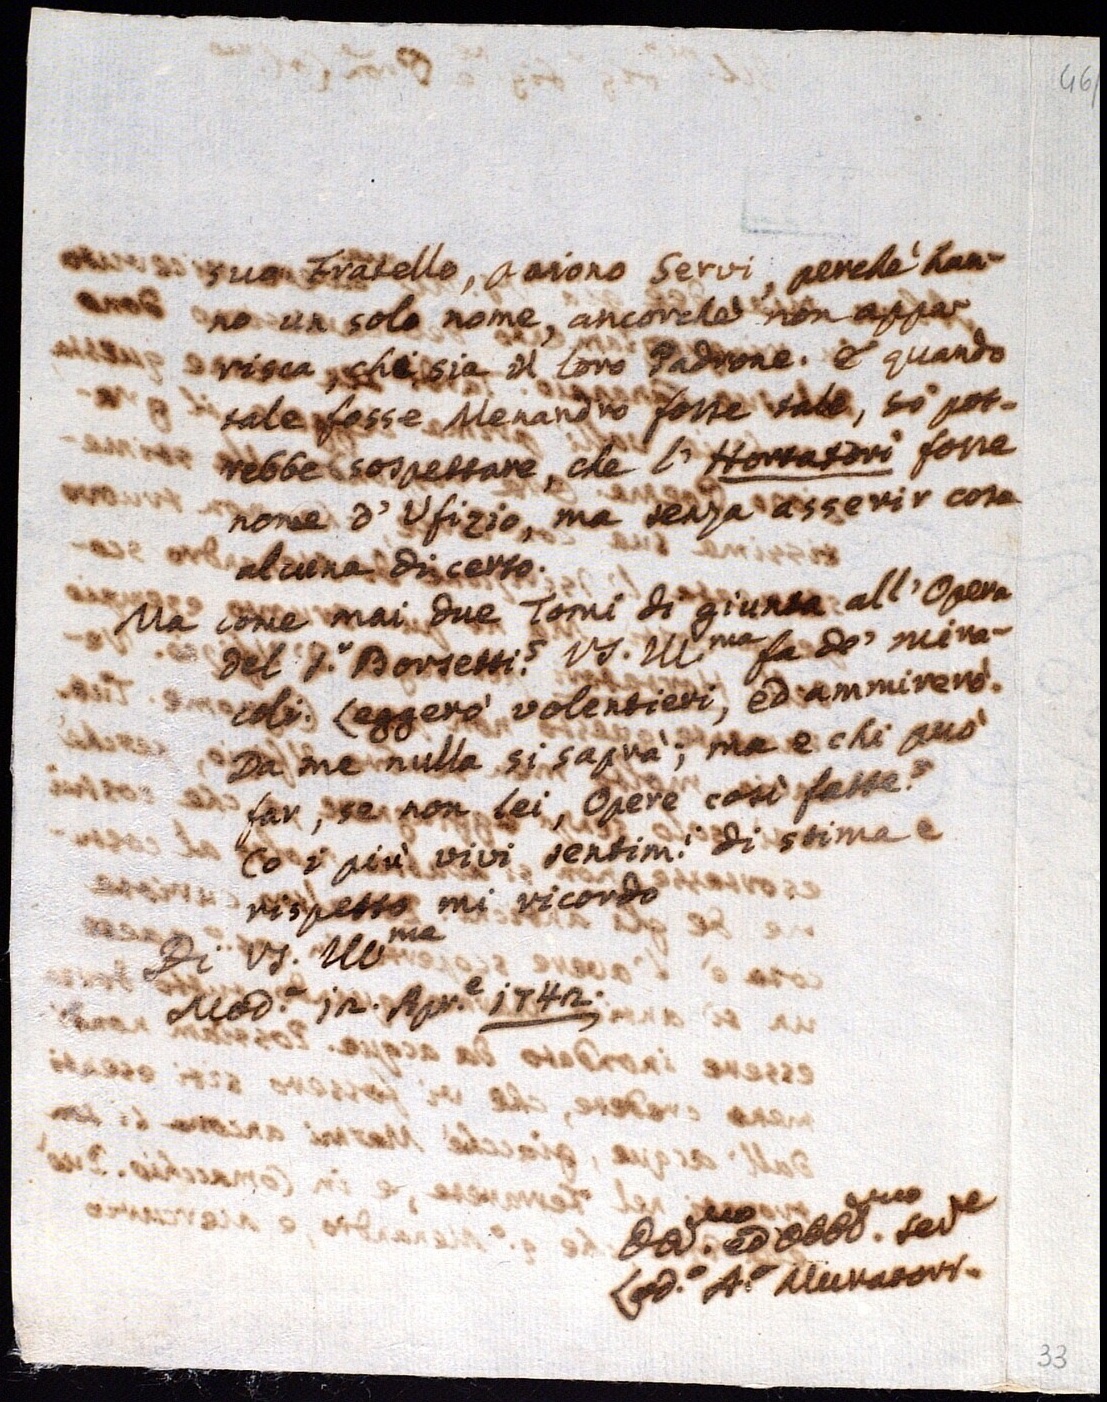 46
suo Fratello, o sieno Servi, perchè han-
no un solo nome, ancorchè non appa
risca, chi sia il loro Padrone. E quando
tale fosse Menandro fosse tale, si pot-
rebbe sospettare, che l' Hortatori fosse
nome d' Ufizio, ma senza asserir cosa
alcuna di certo.
Ma come mai due Tomi di giunta all' Opera
del S.r Borsetti? VS. Ill.ma fa de' mira-
coli. Leggerò volentieri, ed ammirerò.
Da me nulla si saprà; ma e chi può
far, se non lei, Opere così fatte?
Co i più vivi sentim.i di stima e
rispetto mi ricordo
Di VS. Ill.ma
Mod.a 12. Apr.e 1742.
Div.mo ed Obbl.mo Serv.e
Lod.o A.o Muratori.
33